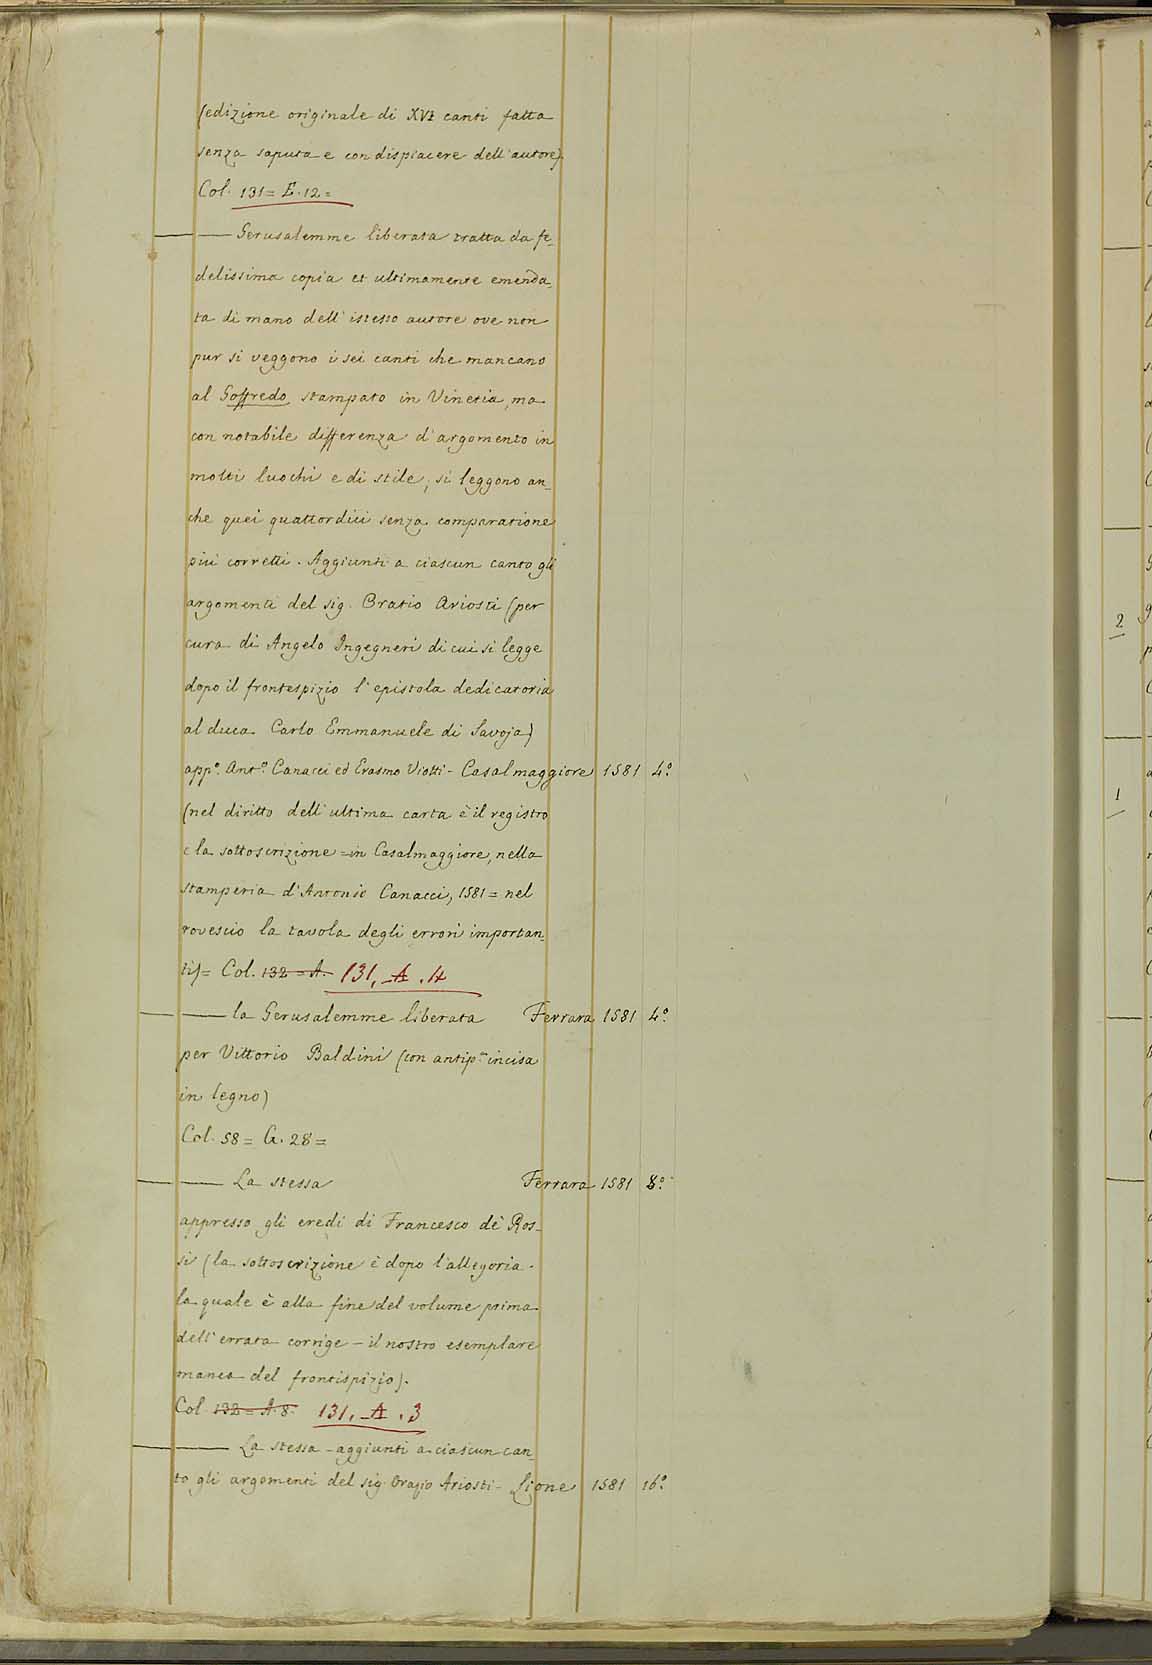 (edizione originale di XVI canti fatta
senza saputa e con dispiacere dell'autore)
Col. 131 = E. 12 =
—— Gerusalemme liberata tratta da fe-
delissima copia et ultimamente emenda-
ta di mano dell'istesso autore ove non
pur si veggono i sei canti che mancano
al Goffredo stampato in Vinetia, ma
con notabile differenza d'argomento in
molti luochi e di stile, si leggono an-
che quei quattordici senza comparatione
più corretti. Aggiunti a ciascun canto gli
argomenti del sig. Oratio Ariosti (per
cura di Angelo Ingegneri di cui si legge
dopo il frontespizio l'epistola dedicatoria
al duca Carlo Emmanuele di Savoja)
app.º Ant.º Canacci ed Erasmo Viotti - Casalmaggiore 1581 4.º
(nel diritto dell'ultima carta è il registro
e la sottoscrizione = in Casalmaggiore, nella
stamperia d'Antonio Canacci, 1581 = nel
rovescio la tavola degli errori importan-
ti) = Col. 132 = A. 131. A. 4
—— la Gerusalemme liberata Ferrara 1581 4.º
per Vittorio Baldini (con antip.ta incisa
in legno)
Col. 58 = G. 28 =
—— La stessa Ferrara 1581 8.º
appresso gli eredi di Francesco de' Ros-
si (la sottoscrizione è dopo l'allegoria
la quale è alla fine del volume prima
dell'errata corrige - il nostro esemplare
manca del frontispizio).
Col. 132 = A. 8. 131. A. 3
—— La stessa - aggiunti a ciascun can-
to gli argomenti del sig. Orazio Ariosti - Lione 1581 16.º
2
1